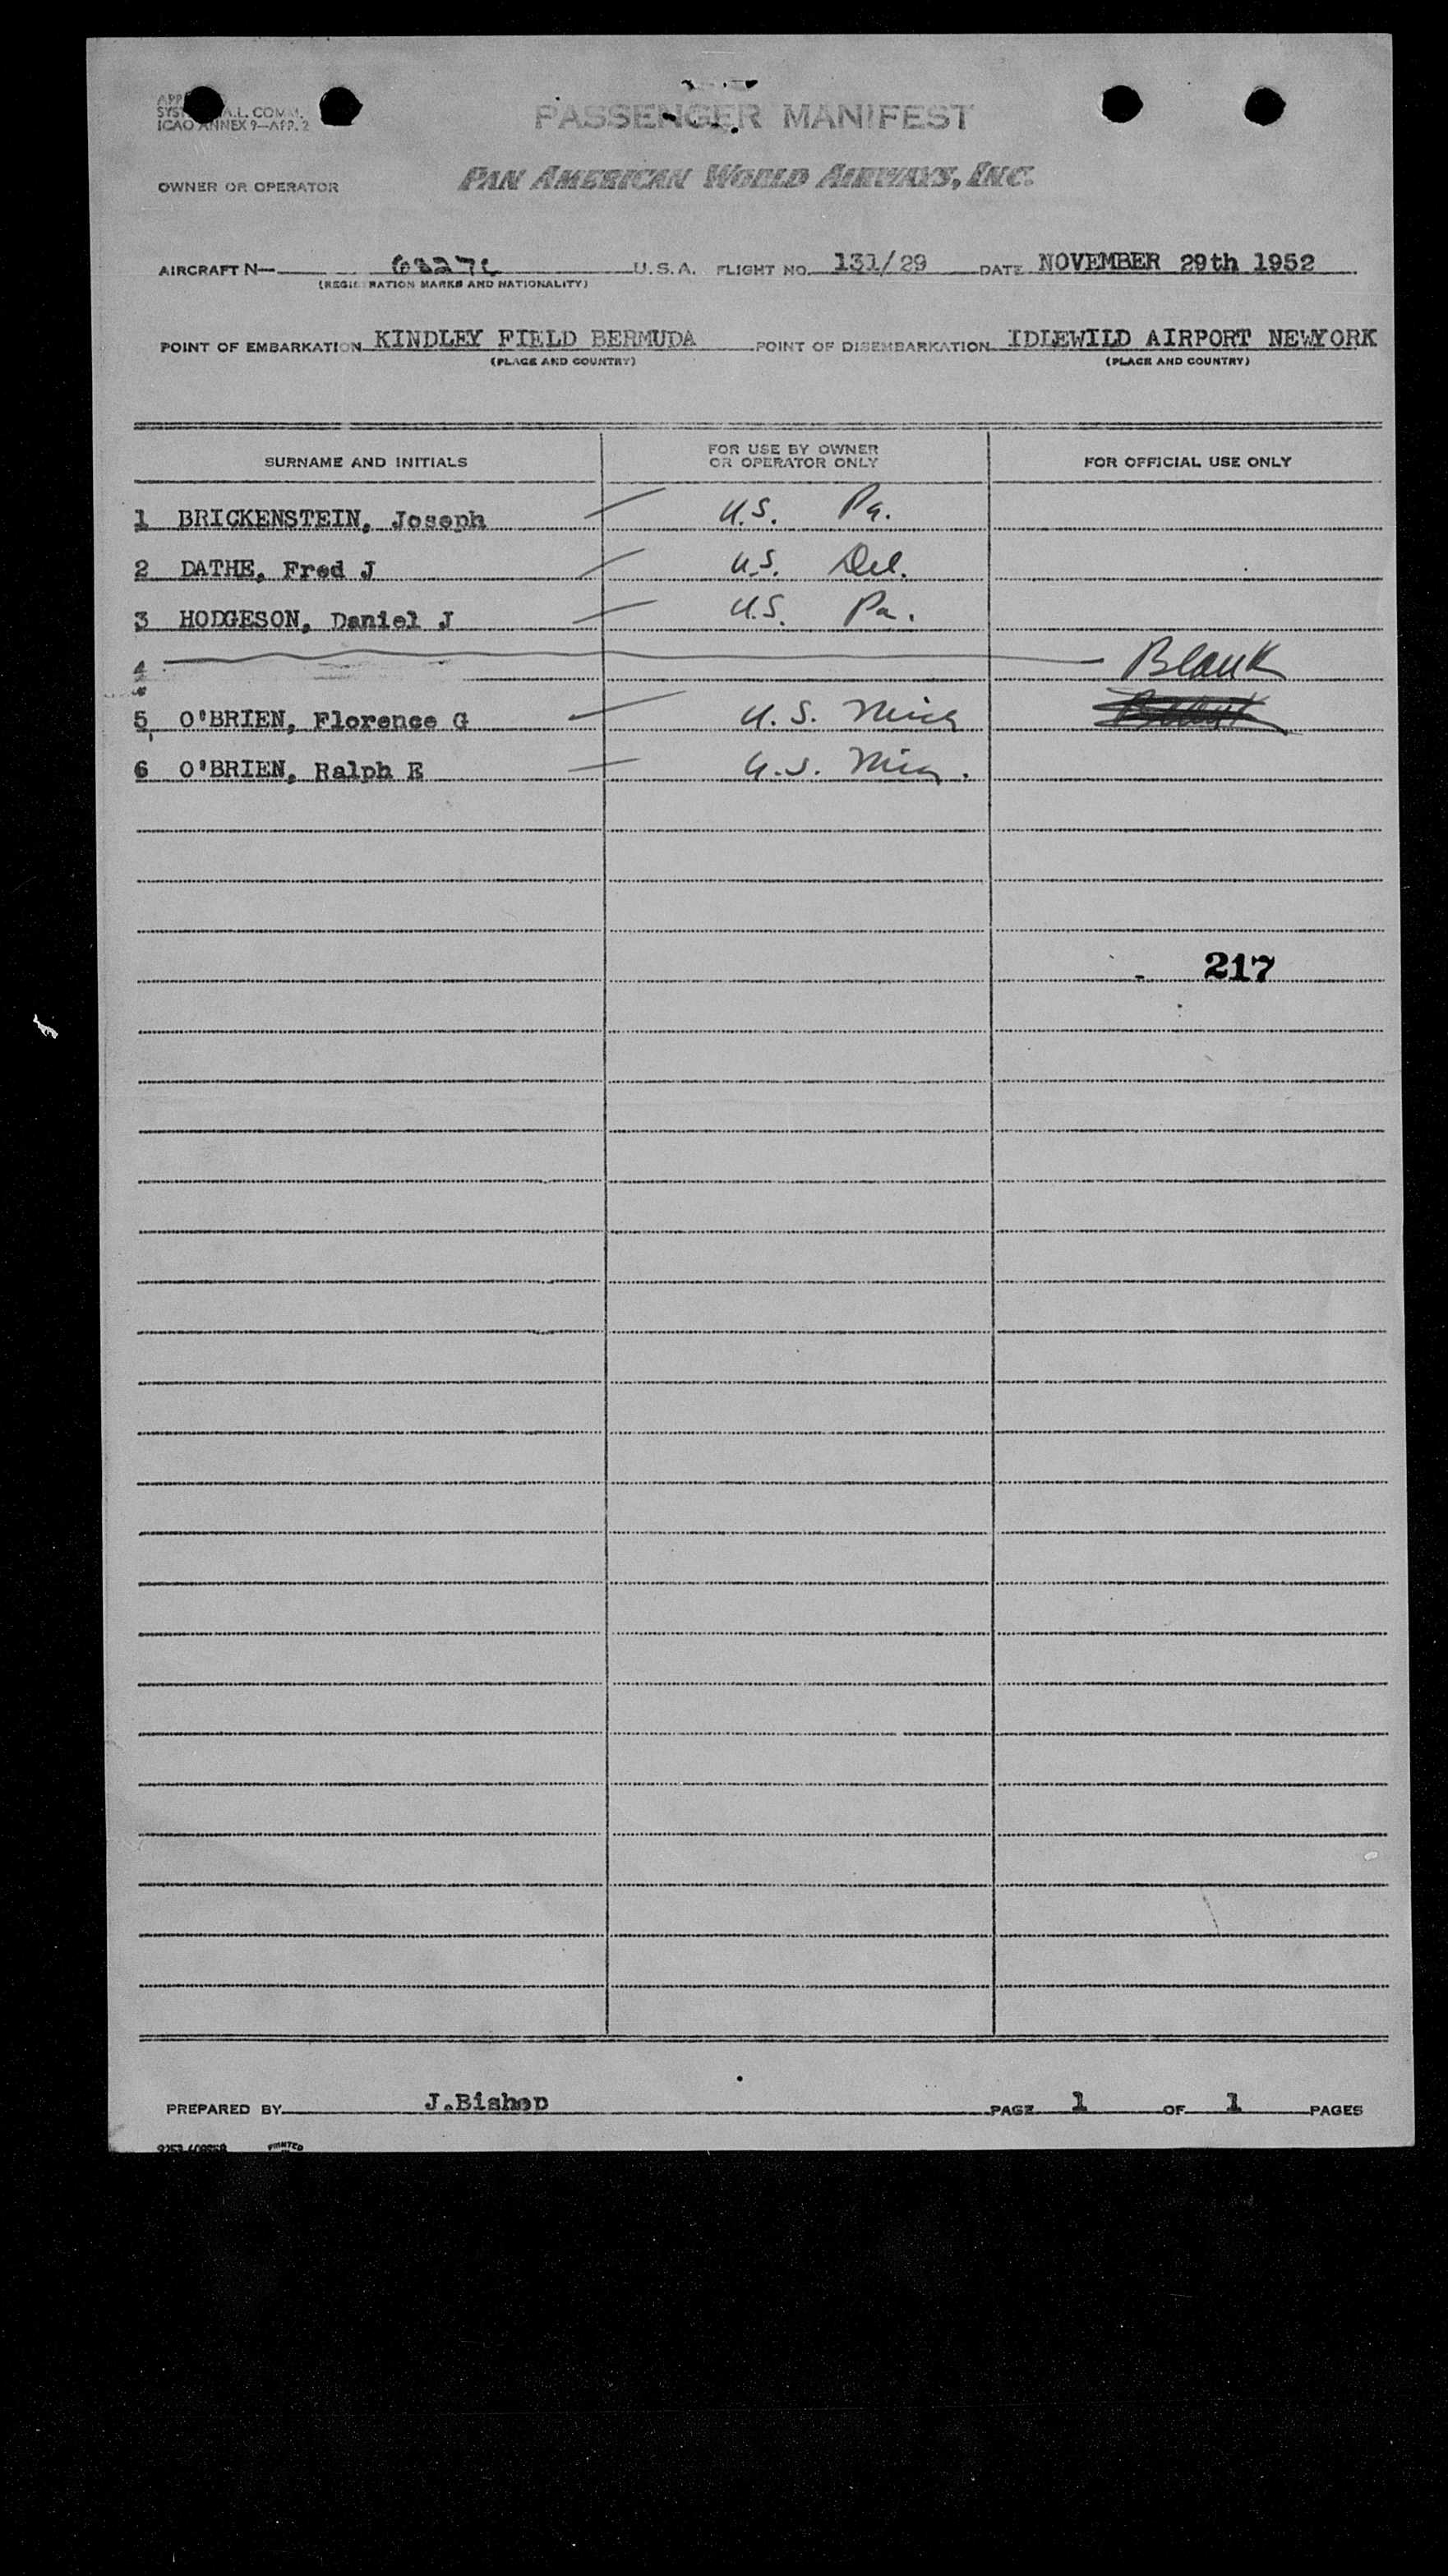 ICAO ANNEX 9—APP. 2
PASSENGER MANIFEST
OWNER OR OPERATOR PAN AMERICAN WORLD AIRWAYS, INC.
AIRCRAFT N— U.S.A. FLIGHT NO. 131/29 DATE NOVEMBER 29th 1952
(REGISTRATION MARKS AND NATIONALITY)
POINT OF EMBARKATION KINDLEY FIELD BERMUDA POINT OF DISEMBARKATION IDLEWILD AIRPORT NEWYORK
(PLACE AND COUNTRY) (PLACE AND COUNTRY)
SURNAME AND INITIALS FOR USE BY OWNER OR OPERATOR ONLY FOR OFFICIAL USE ONLY
1 BRICKENSTEIN, Joseph U.S. Pa.
2 DATHE, Fred J U.S. Del.
3 HODGESON, Daniel J U.S. Pa.
4 Blank
5 O'BRIEN, Florence G U.S. Mich
6 O'BRIEN, Ralph E U.S. Mich.
217
PREPARED BY J.Bishop PAGE 1 OF 1 PAGES
PRINTED